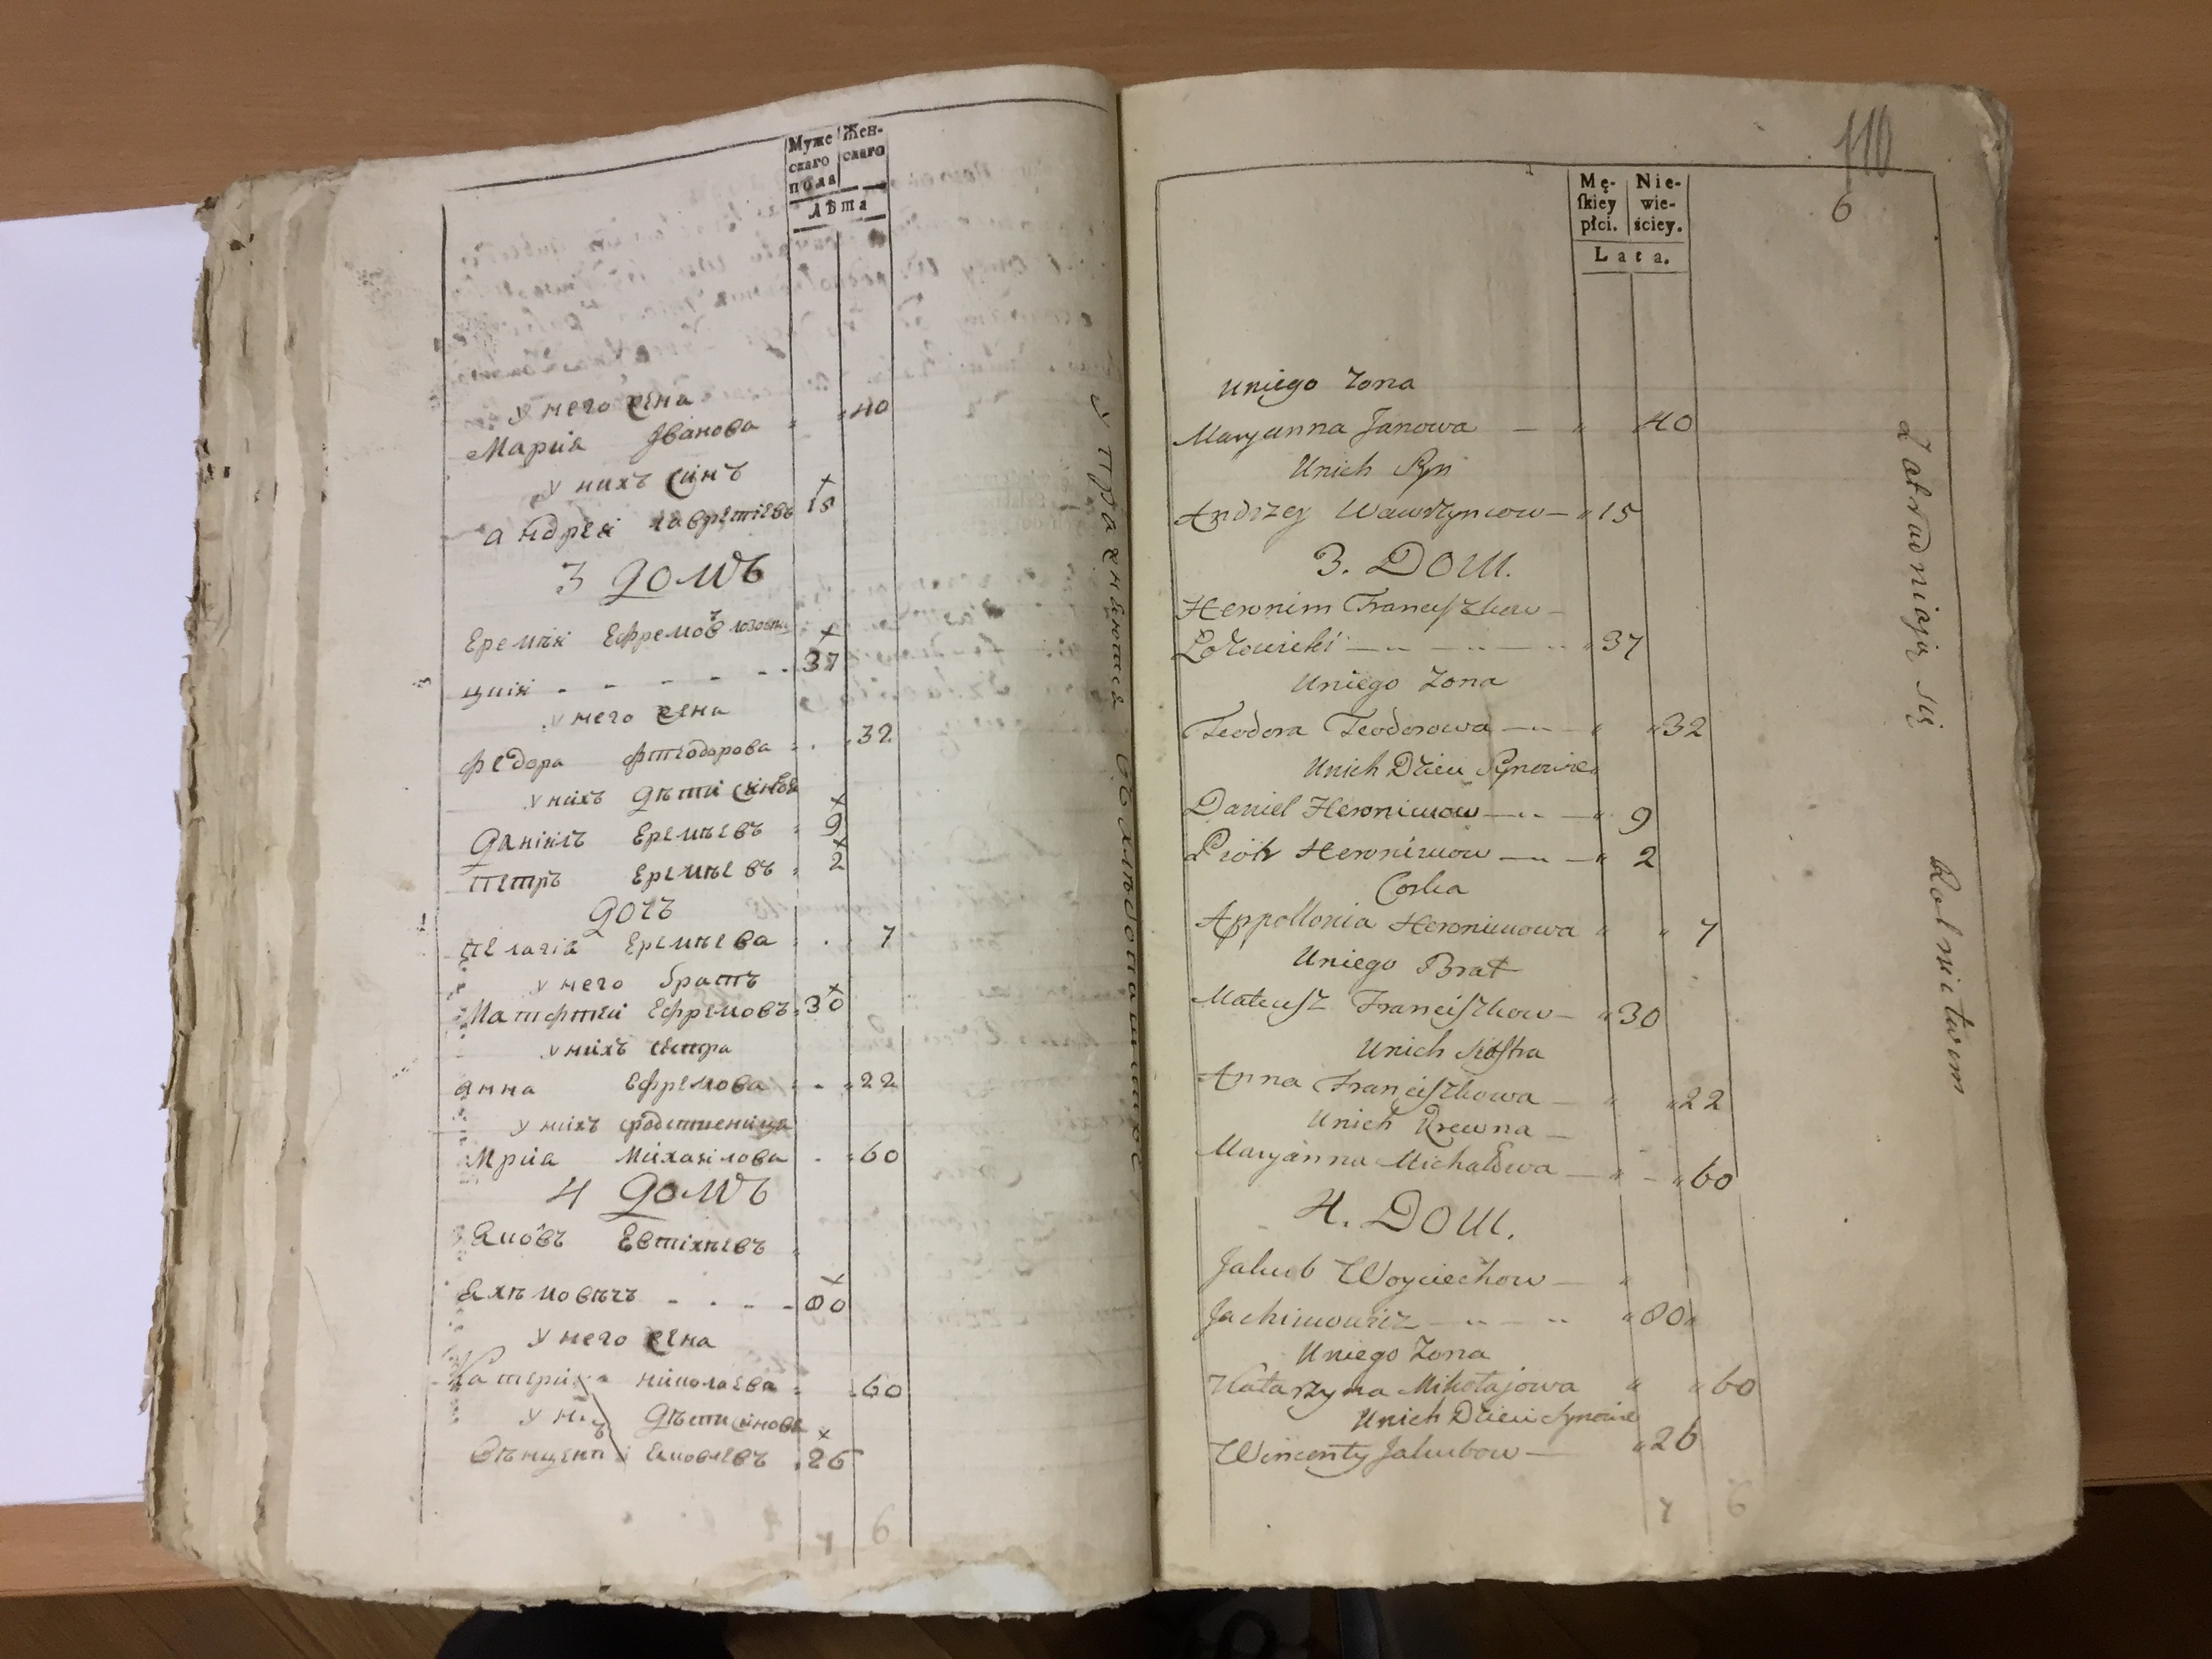 Муже Жен-
скаго скаго
пола
Лѣта
у него жена
Мария Іванова 40
у нихъ синъ
андреи лаврентиевъ 15
3 домъ
Еремѣи Ефремовъ лозовиц
ции - - - - - 37
у него жена
федора фтеодорова 32
у нихъ дѣти синовя
данiилъ Еремѣевъ 9
петръ Еремѣевъ 2
дочъ
пелагія Еремѣева 7
у него братъ
Матфтей Ефремовъ 30
у нихъ сестра
анна Ефремова 22
у нихъ
Мрия Михаилова 60
4 домъ
Яковъ Евтіхиевъ
Яхѣмовѣчъ - - - - 80
у него жена
Катерина николаева 60
у нихъ дѣти синовя
Вѣнценти Яковлевъ 26
7 6
упражняются
110
6
Mę- Nie-
skiey wie-
płci. ściey.
Lata.
Uniego Zona
Maryanna Janowa — " 40
Unich Syn
Andrzey Wawrzyncow — " 15
3. Dom.
Heronim Franciszkow —
" 37
Uniego Zona
Teodora Teodorowa — " " 32
Unich Dzieci Synowie
Daniel Heronimow — " 9
Piotr Heronimow — " 2
Corka
Appollonia Heronimowa " " 7
Uniego Brat
Mateusz Franciszkow — " 30
Unich Siostra
Anna Franciszkowa — " " 22
Unich Krewna —
Maryanna Michałowa — " — " 60
4. Dom.
Jakub Woyciechow — "
Jachimowicz — " 80 "
Uniego Zona
Katarzyna Mikołajowa " " 60
Unich Dzieci Synowie
Wincenty Jakubow — " 26
7 6
Zatrudniają się
Rolnictwem